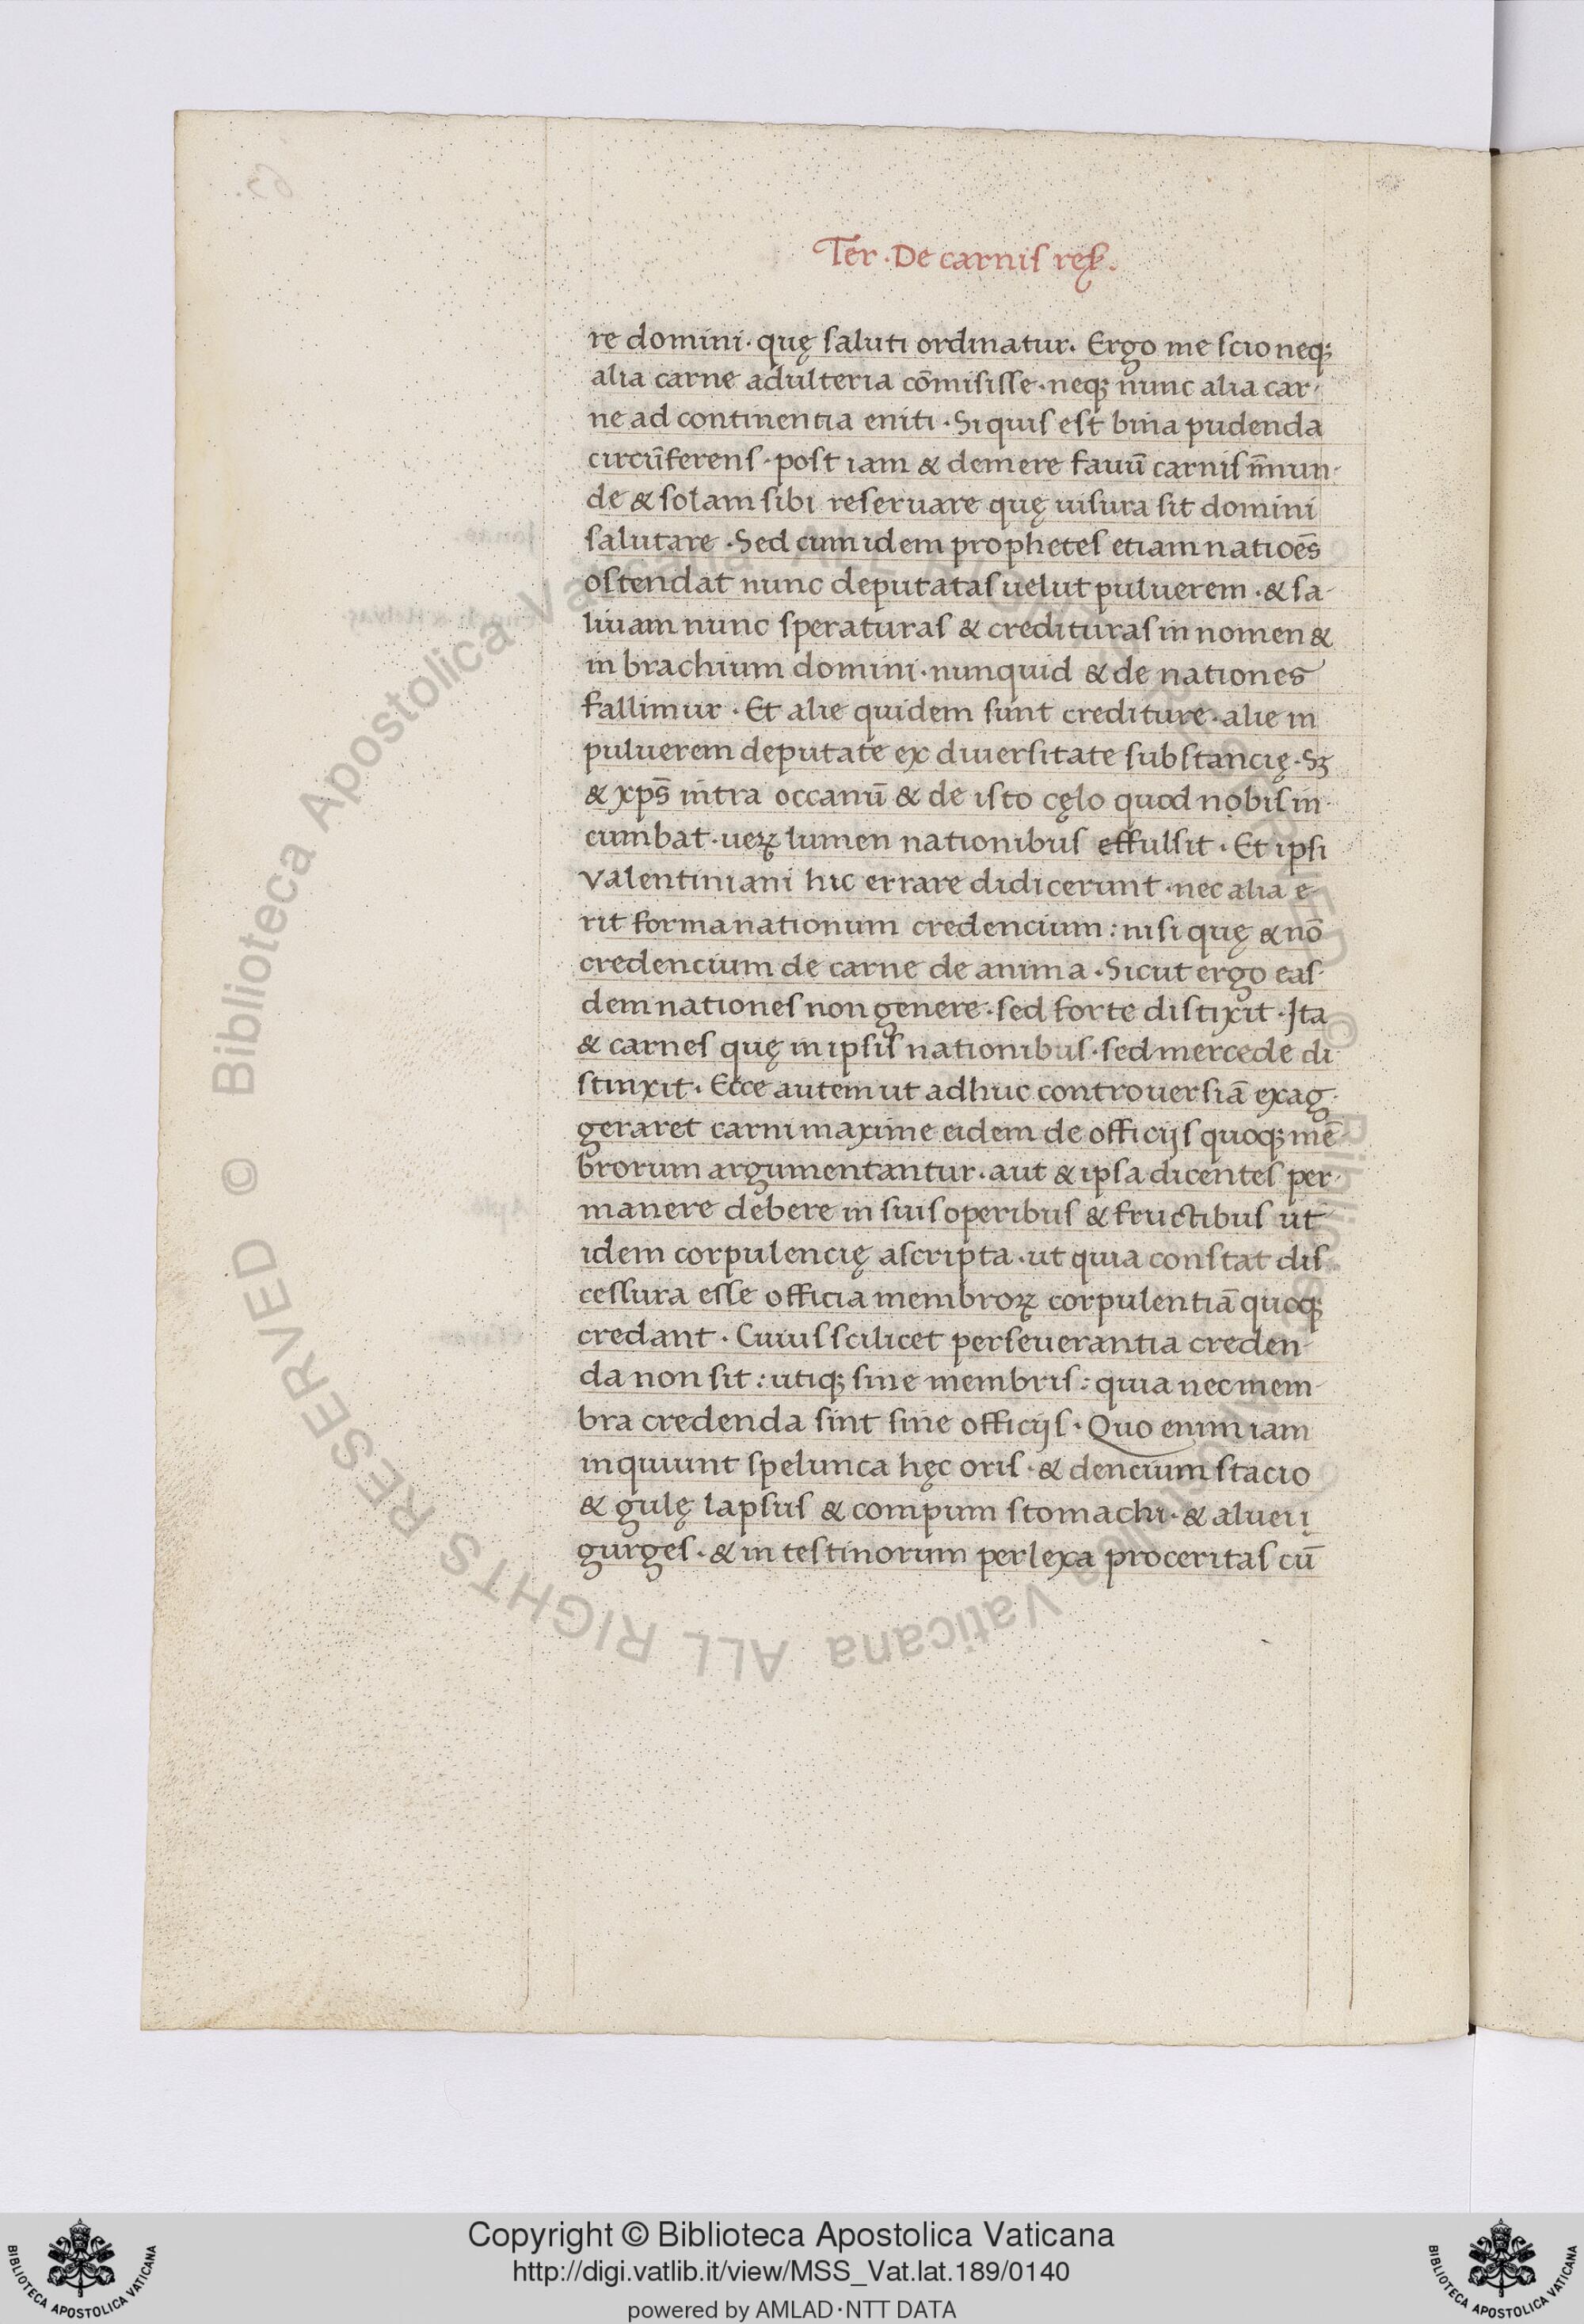 Ter · De carnis res̄.
re domini · quę saluti ordinatur. Ergo me scio neq;
alia carne adulteria cōmisisse · neq; nunc alia car-
ne ad continentia eniti · Si quis est bina pudenda
circūferens · post iam & demere fauū carnis īmun-
de & solam sibi reseruare quę uisura sit domini
salutare · Sed cum idem prophetes etiam natioēs
ostendat nunc deputatas uelut puluerem · & sa-
liuam nunc speraturas & credituras in nomen &
in brachium domini · nunquid & de nationes
fallimur · Et alie quidem sunt crediture · alie in
puluerem deputate ex diuersitate substancię · Sꝫ
& xp̄s intra occanū & de isto cęlo quod nobis in-
cumbat · ueꝝ lumen nationibus effulsit · Et ipsi
valentiniani hic errare didicerunt · nec alia e-
rit forma nationum credencium : nisi quę & nō
credencium de carne de anima · Sicut ergo eas-
dem nationes non genere · sed forte distixit · Ita
& carnes quę in ipsis nationibus · sed mercede di
stinxit · Ecce autem ut adhuc controuersiā exag-
geraret carni maxime eidem de officijs quoq; mē
brorum argumentantur · aut & ipsa dicentes per-
manere debere in suis operibus & fructibus ut
idem corpulencię ascripta · ut quia constat dis-
cessura esse officia membroꝝ corpulentiā quoq;
credant · Cuius scilicet perseuerantia creden-
da non sit : utiq; sine membris : quia nec mem-
bra credenda sint sine officijs · Quo enim iam
inquiunt spelunca hęc oris · & dencium stacio
& gulę lapsus & compum stomachi · & aluei ị
gurges · & intestinorum perlexa proceritas cū
© Biblioteca Apostolica Vaticana ALL RIGHTS RESERVED © Biblioteca Apostolica Vaticana ALL RIGHTS RESERVED
Copyright © Biblioteca Apostolica Vaticana
http://digi.vatlib.it/view/MSS_Vat.lat.189/0140
powered by AMLAD·NTT DATA
BIBLIOTECA APOSTOLICA VATICANA
BIBLIOTECA APOSTOLICA VATICANA